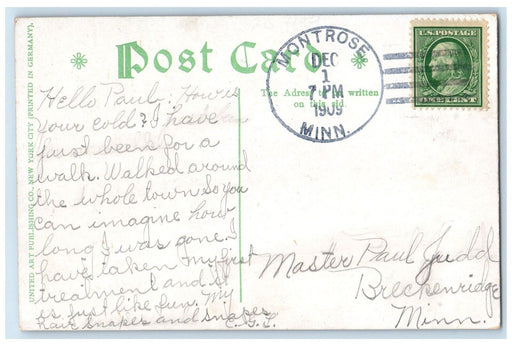 UNITED ART PUBLISHING CO., NEW YORK CITY (PRINTED IN GERMANY).
Post Card
The Adress written
on this sid.
MONTROSE
DEC
1
7 PM
1909
MINN.
U.S. POSTAGE
ONE CENT
Hello Paul: How is
your cold? I have
just been for a
walk. Walked around
the whole town so you
can imagine how
long I was gone. I
have taken my first
treatment and it
is just like fun. My
hair snapes and snapes
Master Paul Judd
Breckenridge
Minn.